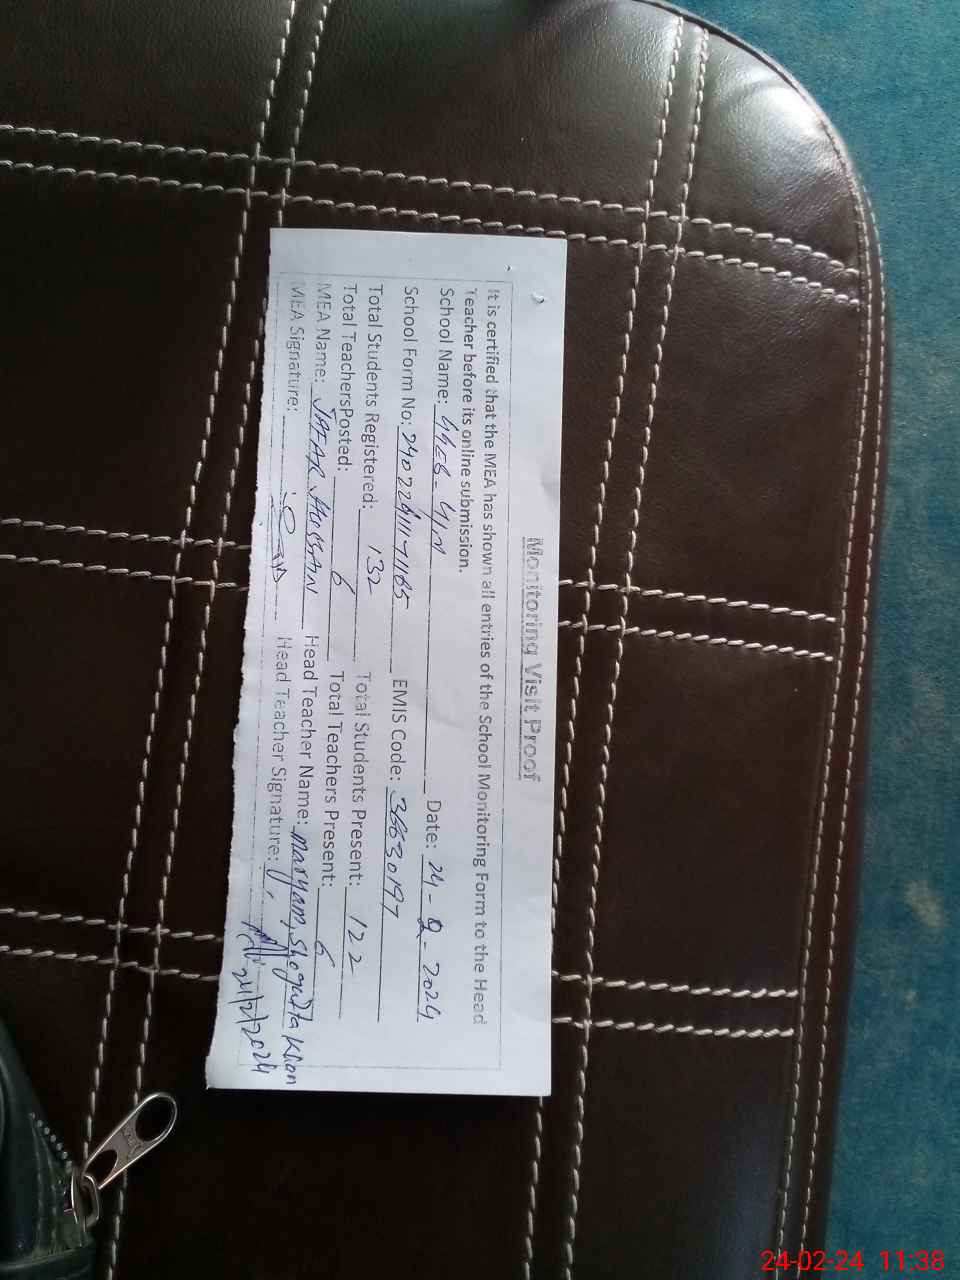 Monitoring Visit Proof
It is certified that the MEA has shown all entries of the School Monitoring Form to the Head
Teacher before its online submission.
School Name: Date: 24-2-2024
School Form No: EMIS Code: 36630197
Total Students Registered: 132 Total Students Present: 122
Total TeachersPosted: 6 Total Teachers Present: 6
MEA Name: JAFAR HASSAN Head Teacher Name: Maryam Shogufta Khan
MEA Signature: Head Teacher Signature: 24/2/2024
24-02-24 11:38